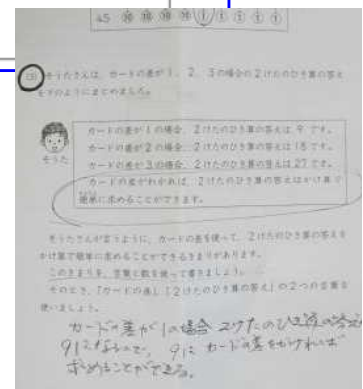 45 ⑩ ⑩ ⑩ ⑩ ① ① ① ① ①
(3) そうたさんは、カードの差が1、2、3の場合の2けたのひき算の答え
を下のようにまとめました。
カードの差が1の場合、2けたのひき算の答えは9です。
カードの差が2の場合、2けたのひき算の答えは18です。
カードの差が3の場合、2けたのひき算の答えは27です。
カードの差がわかれば、2けたのひき算の答えはかけ算で
簡単に求めることができます。
そうた
そうたさんが言うように、カードの差を使って、2けたのひき算の答えを
かけ算で簡単に求めることができるきまりがあります。
このきまりを、言葉と数を使って書きましょう。
そのとき、「カードの差」「2けたのひき算の答え」の2つの言葉を
使いましょう。
カードの差が1の場合 2けたのひき算の答えが
9になるので、9に カードの差をかければ
求めることができる。